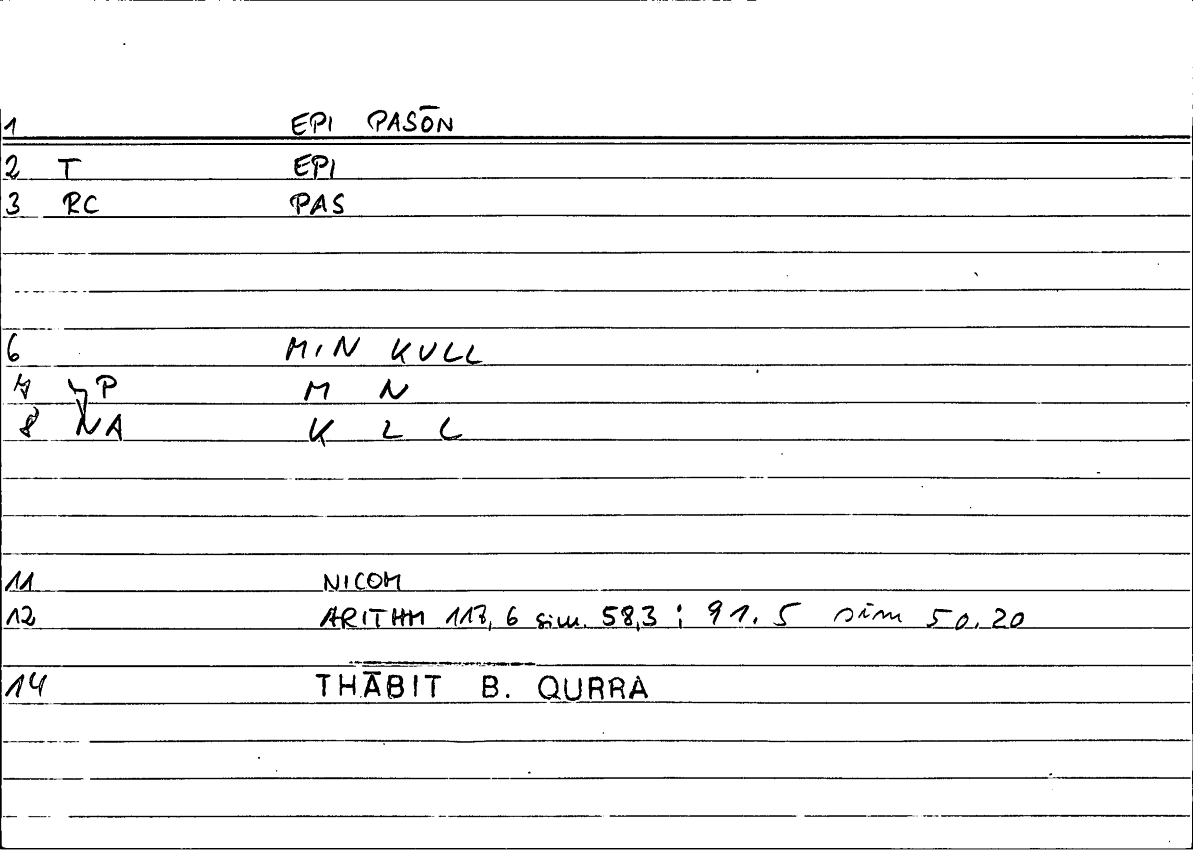 1 EPI PASŌN
2 T EPI
3 RC PAS
6 MIN KULL
7 P M N
8 NA K L L
11 NICOM
12 ARITHM 117, 6 sim. 58,3 ; 91. 5 sim 50.20
14 THĀBIT B. QURRA